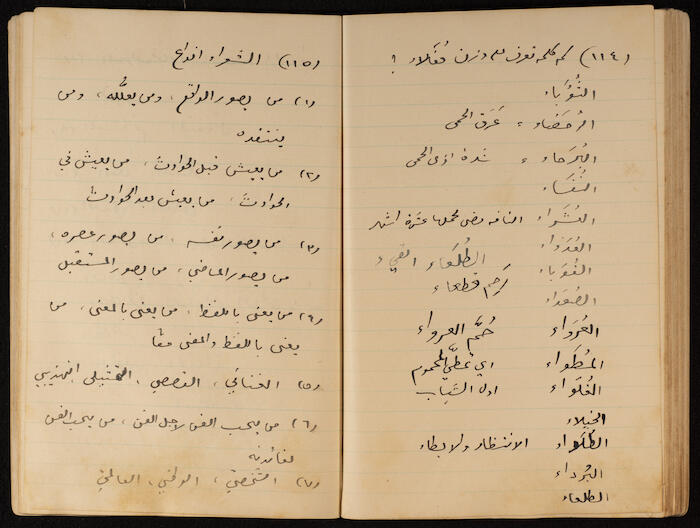 (١١٤) كم كلمة تعرف على وزن فُعَلاء ؟
الثُّوَباء
الرُّحَضاء = عَرَق الحمى
البُرَحاء = شدة اذى الحمى
النُّفَساء
العُشَراء الناقة مضى لحملها عشرة اشهر
العُدَواء
الطُّلَعاء القيء
القُوَباء
رَحِم قطعاء
الصُّعَداء
العُرَواء حُمَّ العرواء
المُطَواء اي تمطّي المحموم
الغُلَواء اول الشباب
الخيلاء
الانتظار والابطاء
البُرَداء
الطلعاء
(١١٥) الشعراء انواع
(١) من يصور الواقع، ومن يعلّله، ومن
ينتقده
(٢) من يعيش قبل الحوادث، من يعيش في
الحوادث، من يعيش بعد الحوادث
(٣) من يصور نفسه، من يصور عصره،
من يصور الماضي، من يصور المستقبل
(٤) من يعنى باللفظ، من يعنى بالمعنى، من
يعنى باللفظ والمعنى معًا
(٥) الغنائي، القصصي، التمثيلي، التهذيبي
(٦) من يحب الفن لاجل الفن، من يحب الفن
لفائدته
(٧) الشخصي، الوطني، العالمي